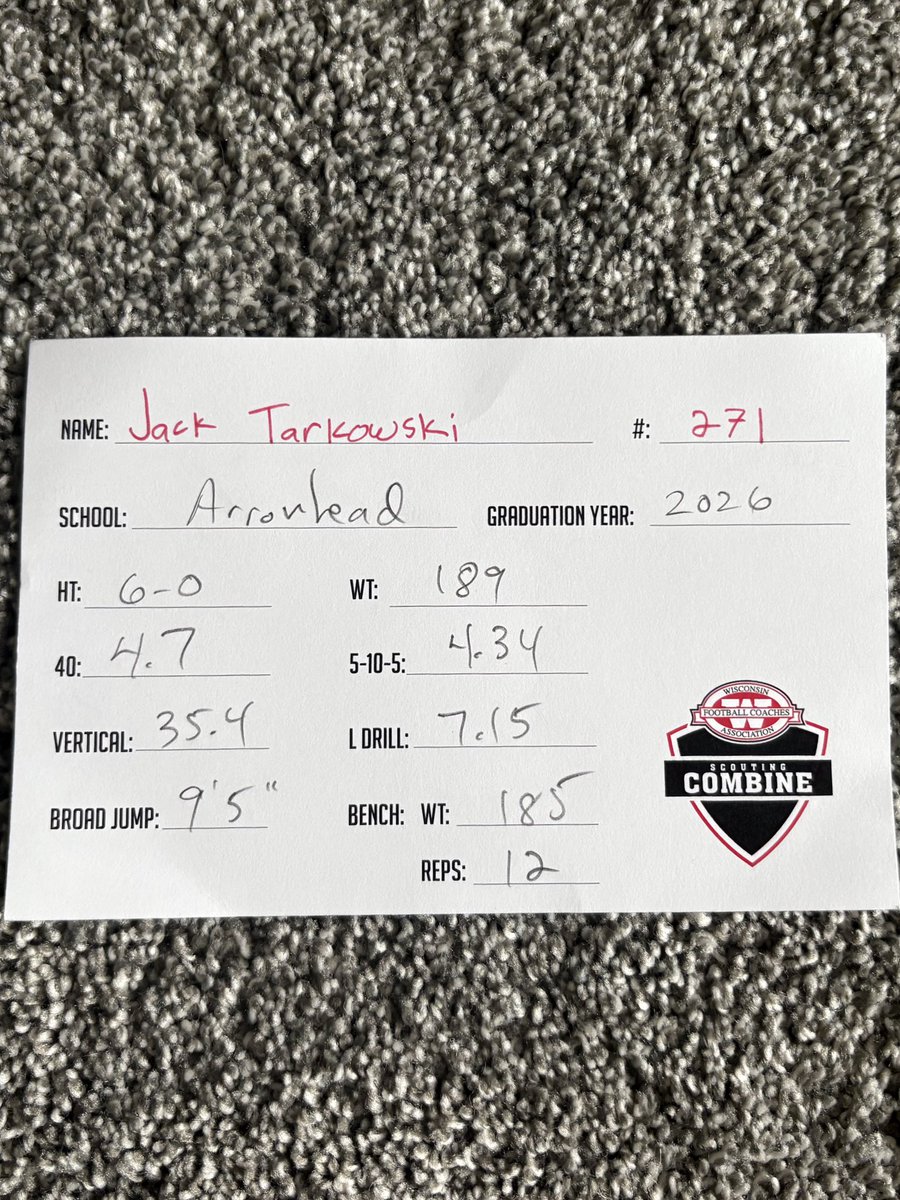 NAME: Jack Tarkowski #: 271
SCHOOL: Arrowhead GRADUATION YEAR: 2026
HT: 6-0 WT: 189
40: 4.7 5-10-5: 4.34
VERTICAL: 35.4 L DRILL: 7.15
BROAD JUMP: 9'5" BENCH: WT: 185
REPS: 12
WISCONSIN
FOOTBALL COACHES
W
ASSOCIATION
SCOUTING
COMBINE